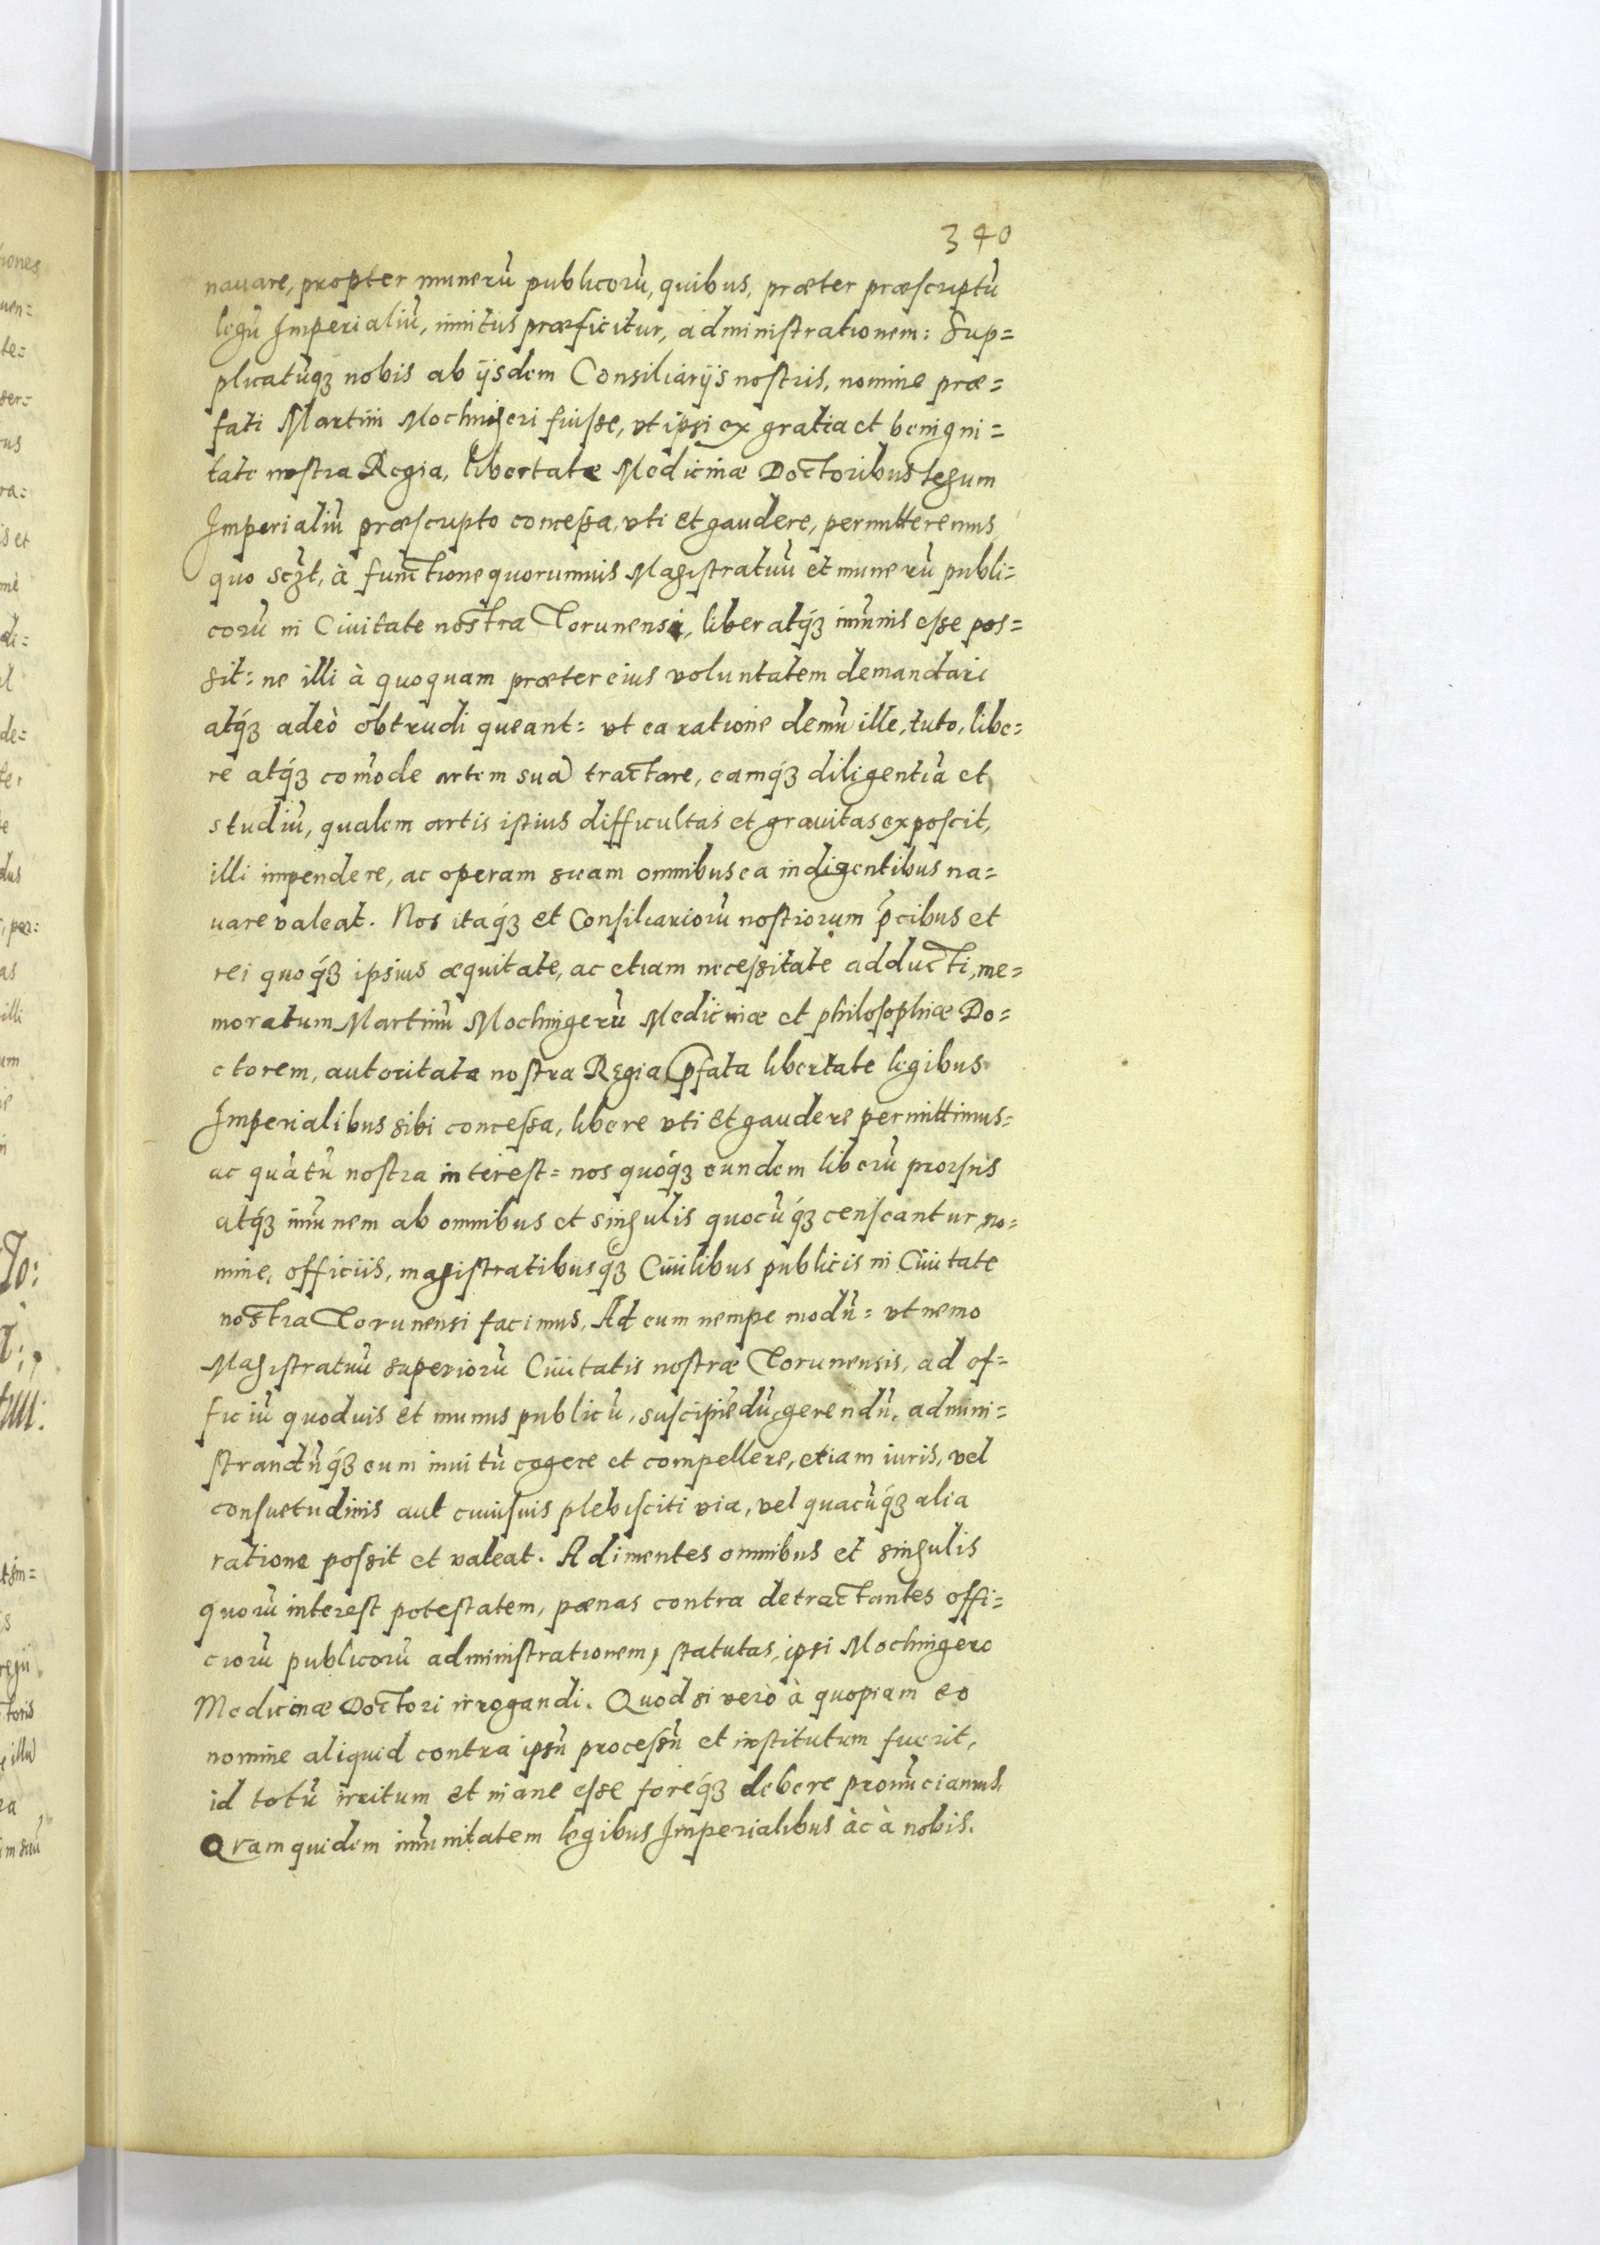 340
nauare, propter munerũ publicorũ, quibus, præter præscriptũ
legũ Imperialiũ, inuitus præficitur, administrationem: Sup=
plicatũq́ꝫ nobis ab ijsdem Consiliarijs nostris, nomine præ=
fati Martini Mochingeri fuisse, vt ipsi ex gratia et benigni=
tate nostra Regia, libertate Medicinæ Doctoribus legum
Imperialiũ præscripto concessa, vti et gaudere, permitteremus
quo scꝫt, à functione quorumuis Magistratuũ et munerũ publi=
corũ in Ciuitate nostra Torunensi, liber atq́ꝫ im̃unis esse pos=
sit: ne illi à quoquam præter eius voluntatem demandari
atq́ꝫ adeò obtrudi queant: vt ea ratione demũ ille, tuto, libe=
re atq́ꝫ com̃ode artem suã tractare, eamq́ꝫ diligentiã et
studiũ, qualem artis istius difficultas et grauitas exposcit,
illi impendere, ac operam suam omnibus ea indigentibus na=
uare valeat. Nos itaq́ꝫ et Consiliariorũ nostrorum p̃cibus et
rei quoq́ꝫ ipsius æquitate, ac etiam necessitate adducti, me=
moratum Martinũ Mochingerũ Medicinæ et philosophiæ Do=
ctorem, autoritate nostra Regia p̃fata libertate legibus
Imperialibus sibi concessa, libere vti et gaudere permittimus=
ac quãtũ nostra interest= nos quoq́ꝫ eundem liberũ prorsus
atq́ꝫ im̃unem ab omnibus et singulis quocũq́ꝫ censeantur no=
mine, officiis, magistratibusq́ꝫ Ciuilibus publicis in Ciuitate
nostra Torunensi facimus, Ad eum nempe modũ= vt nemo
Magistratuũ superiorũ Ciuitatis nostræ Torunensis, ad of=
ficiũ quoduis et munus publicũ, suscipiẽdũ, gerendũ, admini=
strandũq́ꝫ eum inuitũ cogere et compellere, etiam iuris, vel
consuetudinis aut cuiusuis plebisciti via, vel quacũq́ꝫ alia
ratione possit et valeat. Adimentes omnibus et singulis
quorũ interest potestatem, pœnas contra detractantes offi=
ciorũ publicorũ administrationem, statutas, ipsi Mochingero
Medicinæ Doctori irrogandi. Quod si verò à quopiam eo
nomine aliquid contra ipsũ processũ et institutum fuerit,
id totũ irritum et inane esse foreq́ꝫ debere pronũciamus.
Qvam quidem im̃unitatem legibus Imperialibus àc à nobis.